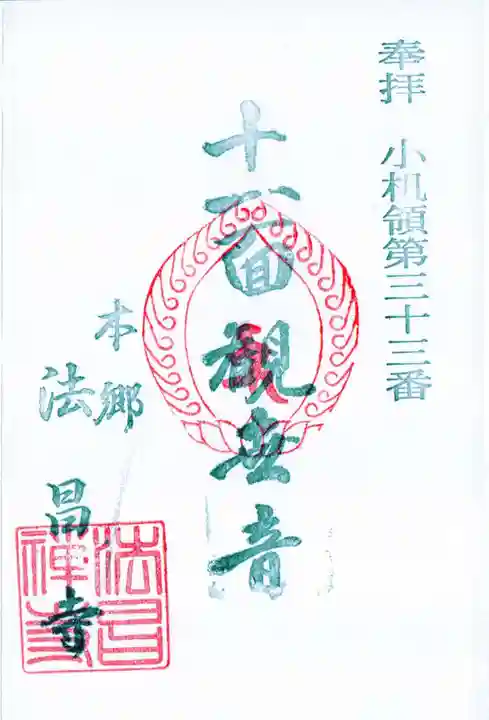 奉拝 小机領第三十三番
十一面観世音
本郷
法昌寺
法昌
禅寺